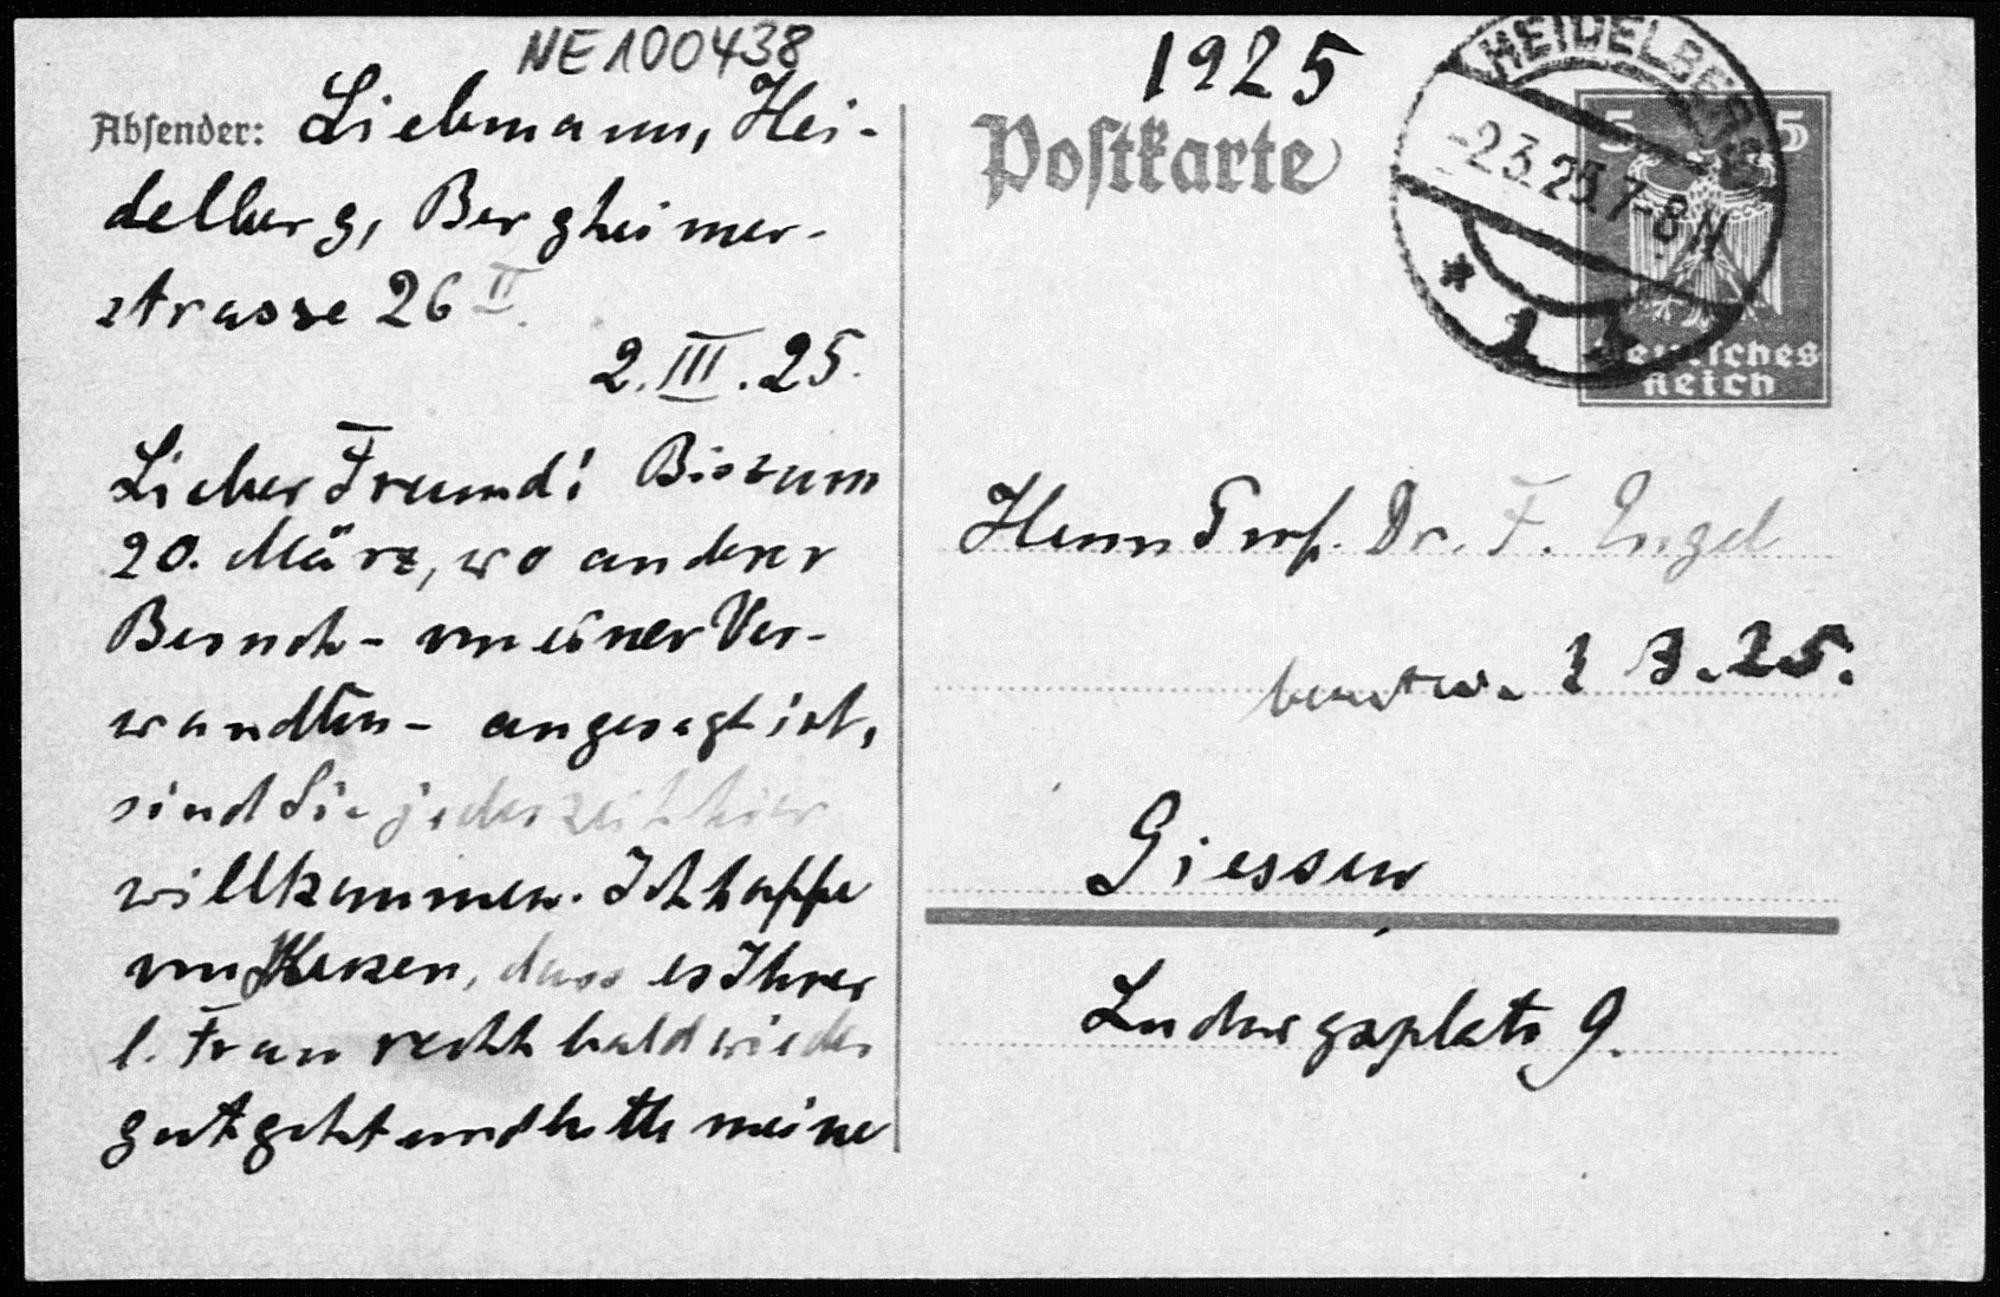 NE100438
Absender: Liebmann, Hei-
delberg, Bergheimer-
strasse 26 II.
2.III.25.
Lieber Freund! Bis zum
20. März, wo anderer
Besuch - meiner Ver-
wandten - angesagt ist,
sind Sie jederzeit hier
willkommen. Ich hoffe
von Herzen, dass es Ihrer
l. Frau recht bald wieder
gut geht und bitte meine
1925
Postkarte
HEIDELBERG
-2.3.25.7-8N
* 1
5 5
Deutsches
Reich
Herrn Prof. Dr. F. Engel
beantw. 3.25.
Giessen
Ludwigsplatz 9.